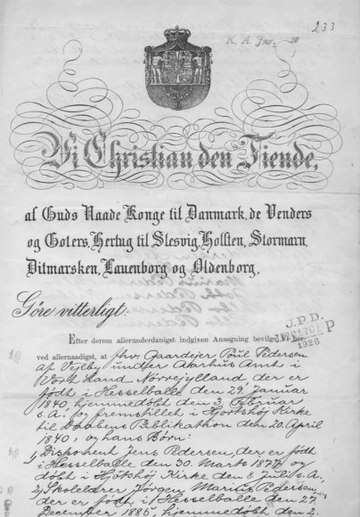 233
K. A. Jnr.
Vi Christian den Tiende,
af Guds Naade Konge til Danmark, de Venders
og Goters, Hertug til Slesvig, Holsten, Stormarn,
Ditmarsken, Lauenborg og Oldenborg,
Göre vitterligt:
J.P.D.
1926
P
Efter derom allerunderdanigst indgiven Ansøgning bevilge Vi
ved allernaadigst, at fhv. Gaardejer Poul Pedersen
af Vejlby under Aarhus Amt i
Vort Land Nørrejylland, der er
født i Hesselballe den 29. Januar
1840, hjemmedøbt den 3. Februar
s.A. og fremstillet i Hjortshøj Kirke
til Daabens Publikation den 20. April
1840, og hans Børn:
1) Disponent Jens Pedersen, der er født
i Hesselballe den 30. Marts 1877 og
døbt i Hjortshøj Kirke den 8. Juli s.A.
2) Skolelærer Jørgen Marius Pedersen,
der er født i Hesselballe den 27.
December 1885, hjemmedøbt den 2.